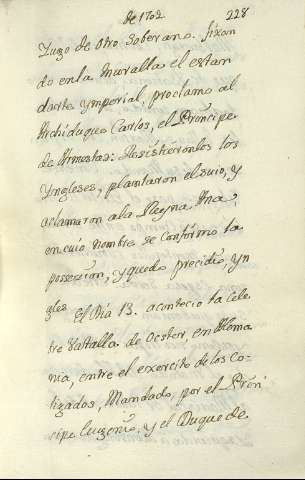 de 1702. 228
Yugo de otro Soberano. fixan
do en la muralla el estan
darte ymperial, proclamo al
Archiduque Carlos, el Príncipe
de Armestas: Resistieronlos los
Yngleses, plantaron el suio, y
aclamaron a la Reyna Ana,
en cuio nombre se confirmo la
possesion, y quedo precidio, yn
gles. El Dia 13. acontecio la Cele
bre Vatalla de Oester, en Alema
nia, entre el exercito de los Co-
ligados, Mandado, por el Prin
cipe Eugenio, y el Duque de